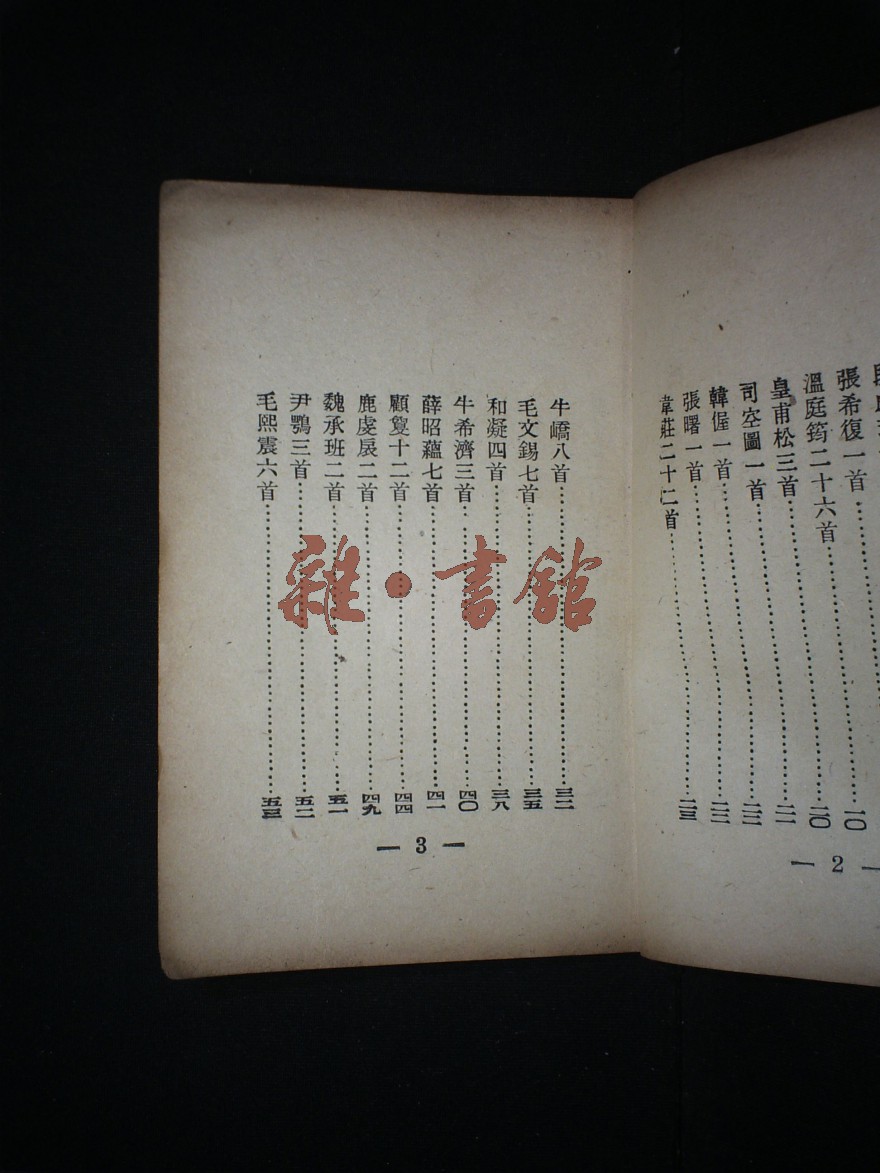 張希復一首
溫庭筠二十六首……一〇
皇甫松三首……二〇
司空圖一首……二一
韓偓一首……二二
張曙一首……二二
韋莊二十二首……二三
— 2 —
牛嶠八首……三二
毛文錫七首……三五
和凝四首……三八
牛希濟三首……四〇
薛昭蘊七首……四一
顧敻十二首……四四
鹿虔扆二首……四九
魏承班二首……五一
尹鶚三首……五二
毛熙震六首……五三
— 3 —
雜·書館